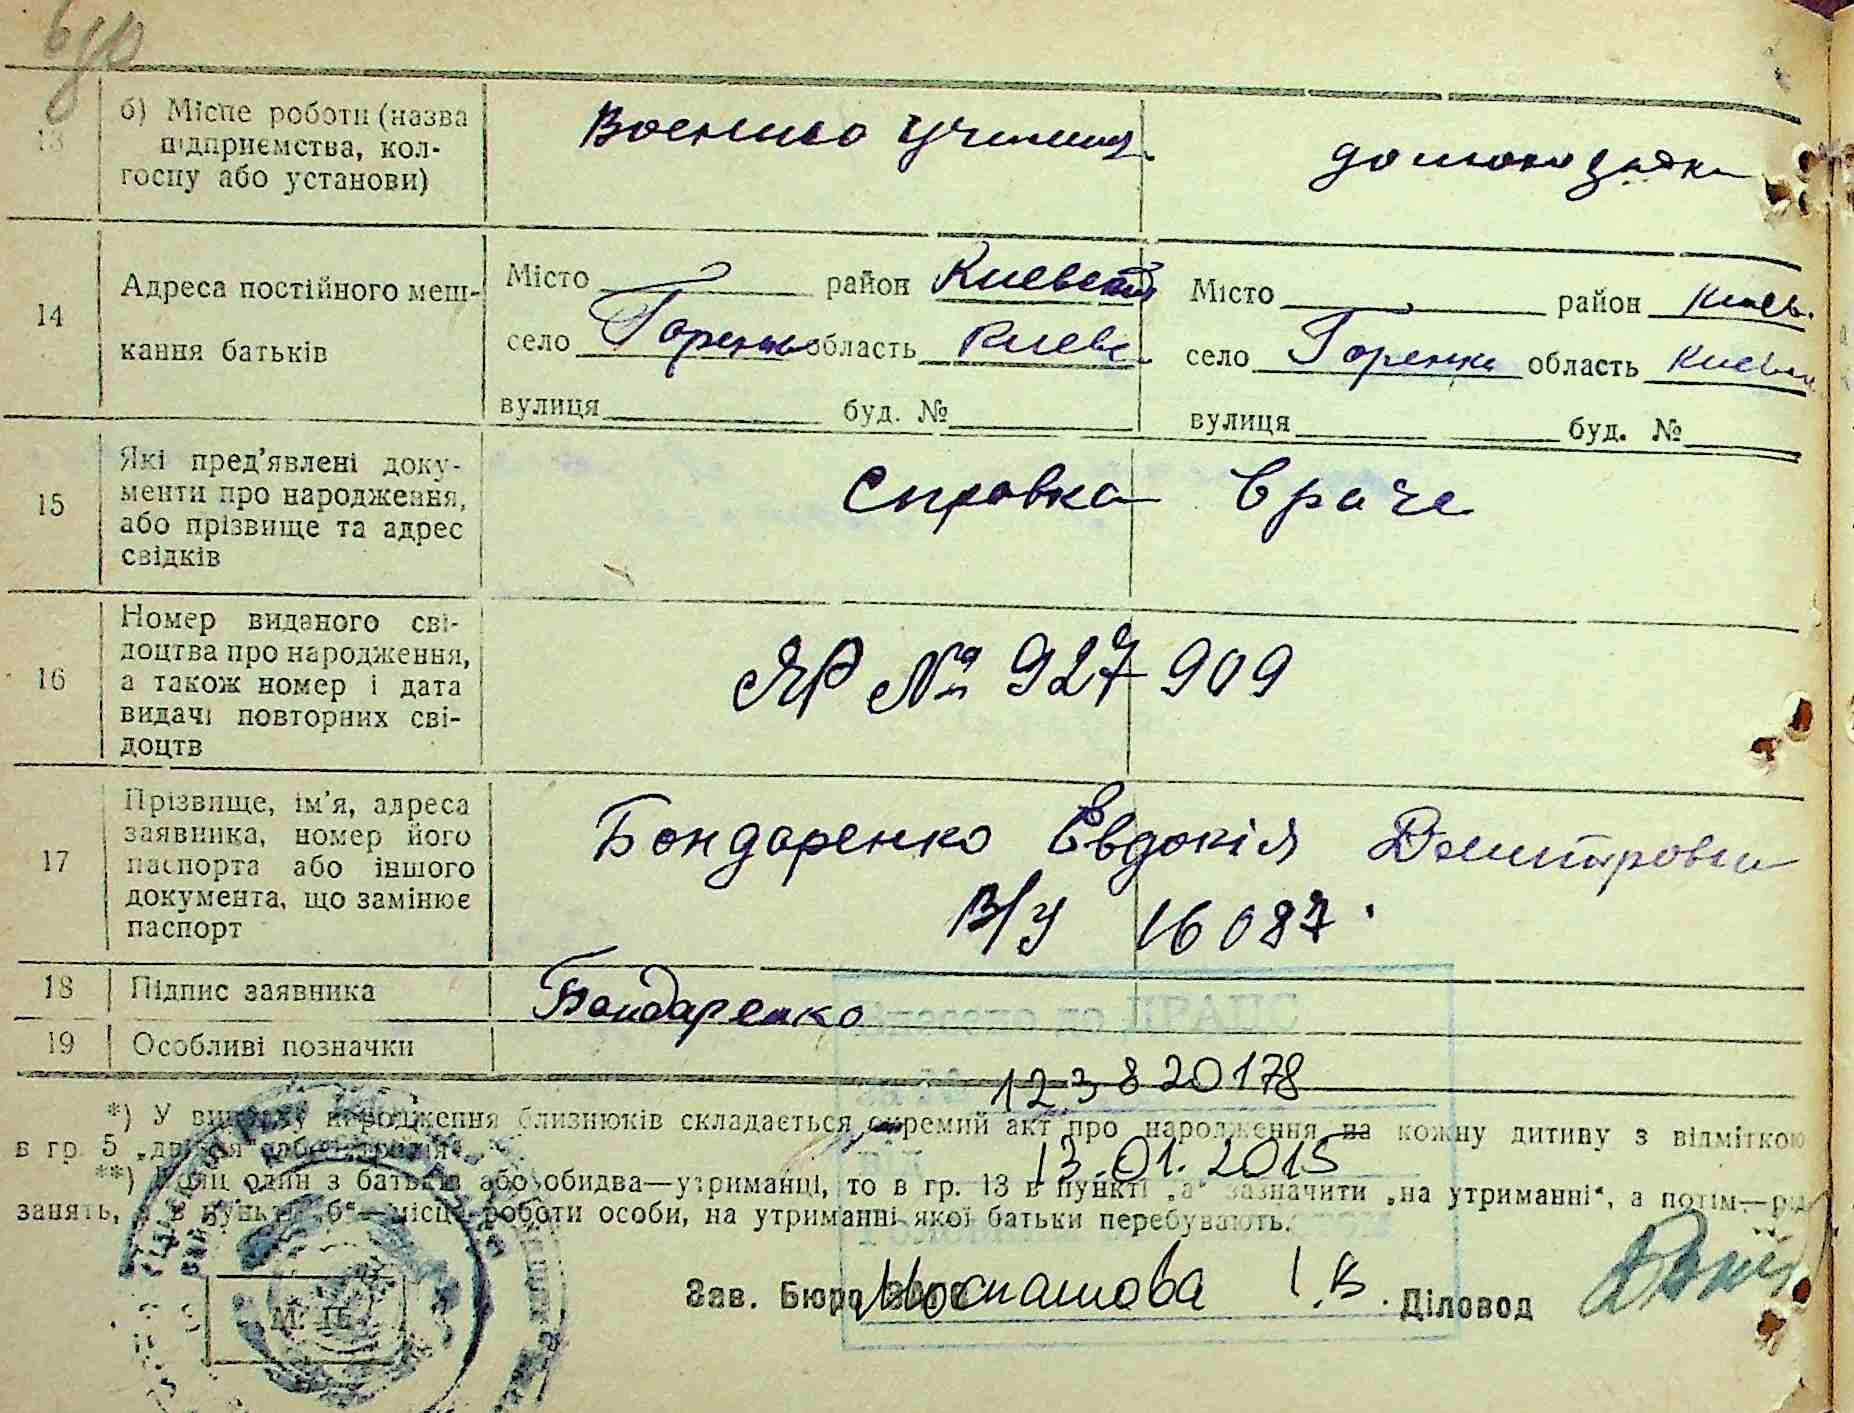 13
б) Місце роботи (назва
підприємства, кол-
госпу або установи)
Военико училищ.
домохозяйка
14
Адреса постійного меш-
кання батьків
Місто район Киевский
село Горенка область Киевс
вулиця буд. №
Місто район Киев.
село Горенка область Киевск
вулиця буд. №
15
Які пред'явлені доку-
менти про народження,
або прізвище та адрес
свідків
Справка врача
16
Номер виданого сві-
доцтва про народження,
а також номер і дата
видачі повторних сві-
доцтв
ЯР № 927909
17
Прізвище, ім'я, адреса
заявника, номер його
паспорта або іншого
документа, що замінює
паспорт
Бондаренко Евдокія Дмитровна
В/У 16087.
18
Підпис заявника
Бондаренко
19
Особливі позначки
ДРАЦС
123820178
*) У випадку народження близнюків складається окремий акт про народження на кожну дитину з відміткою
в гр. 5 „двійня" або „трійня".
13.01.2015
**) Коли один з батьків або обидва—утриманці, то в гр. 13 в пункті „а" зазначити „на утриманні", а потім—рід
занять, а в пункті „б"—місце роботи особи, на утриманні якої батьки перебувають.
Зав. Бюро ЗАГС
І.В.
Діловод
М. П.